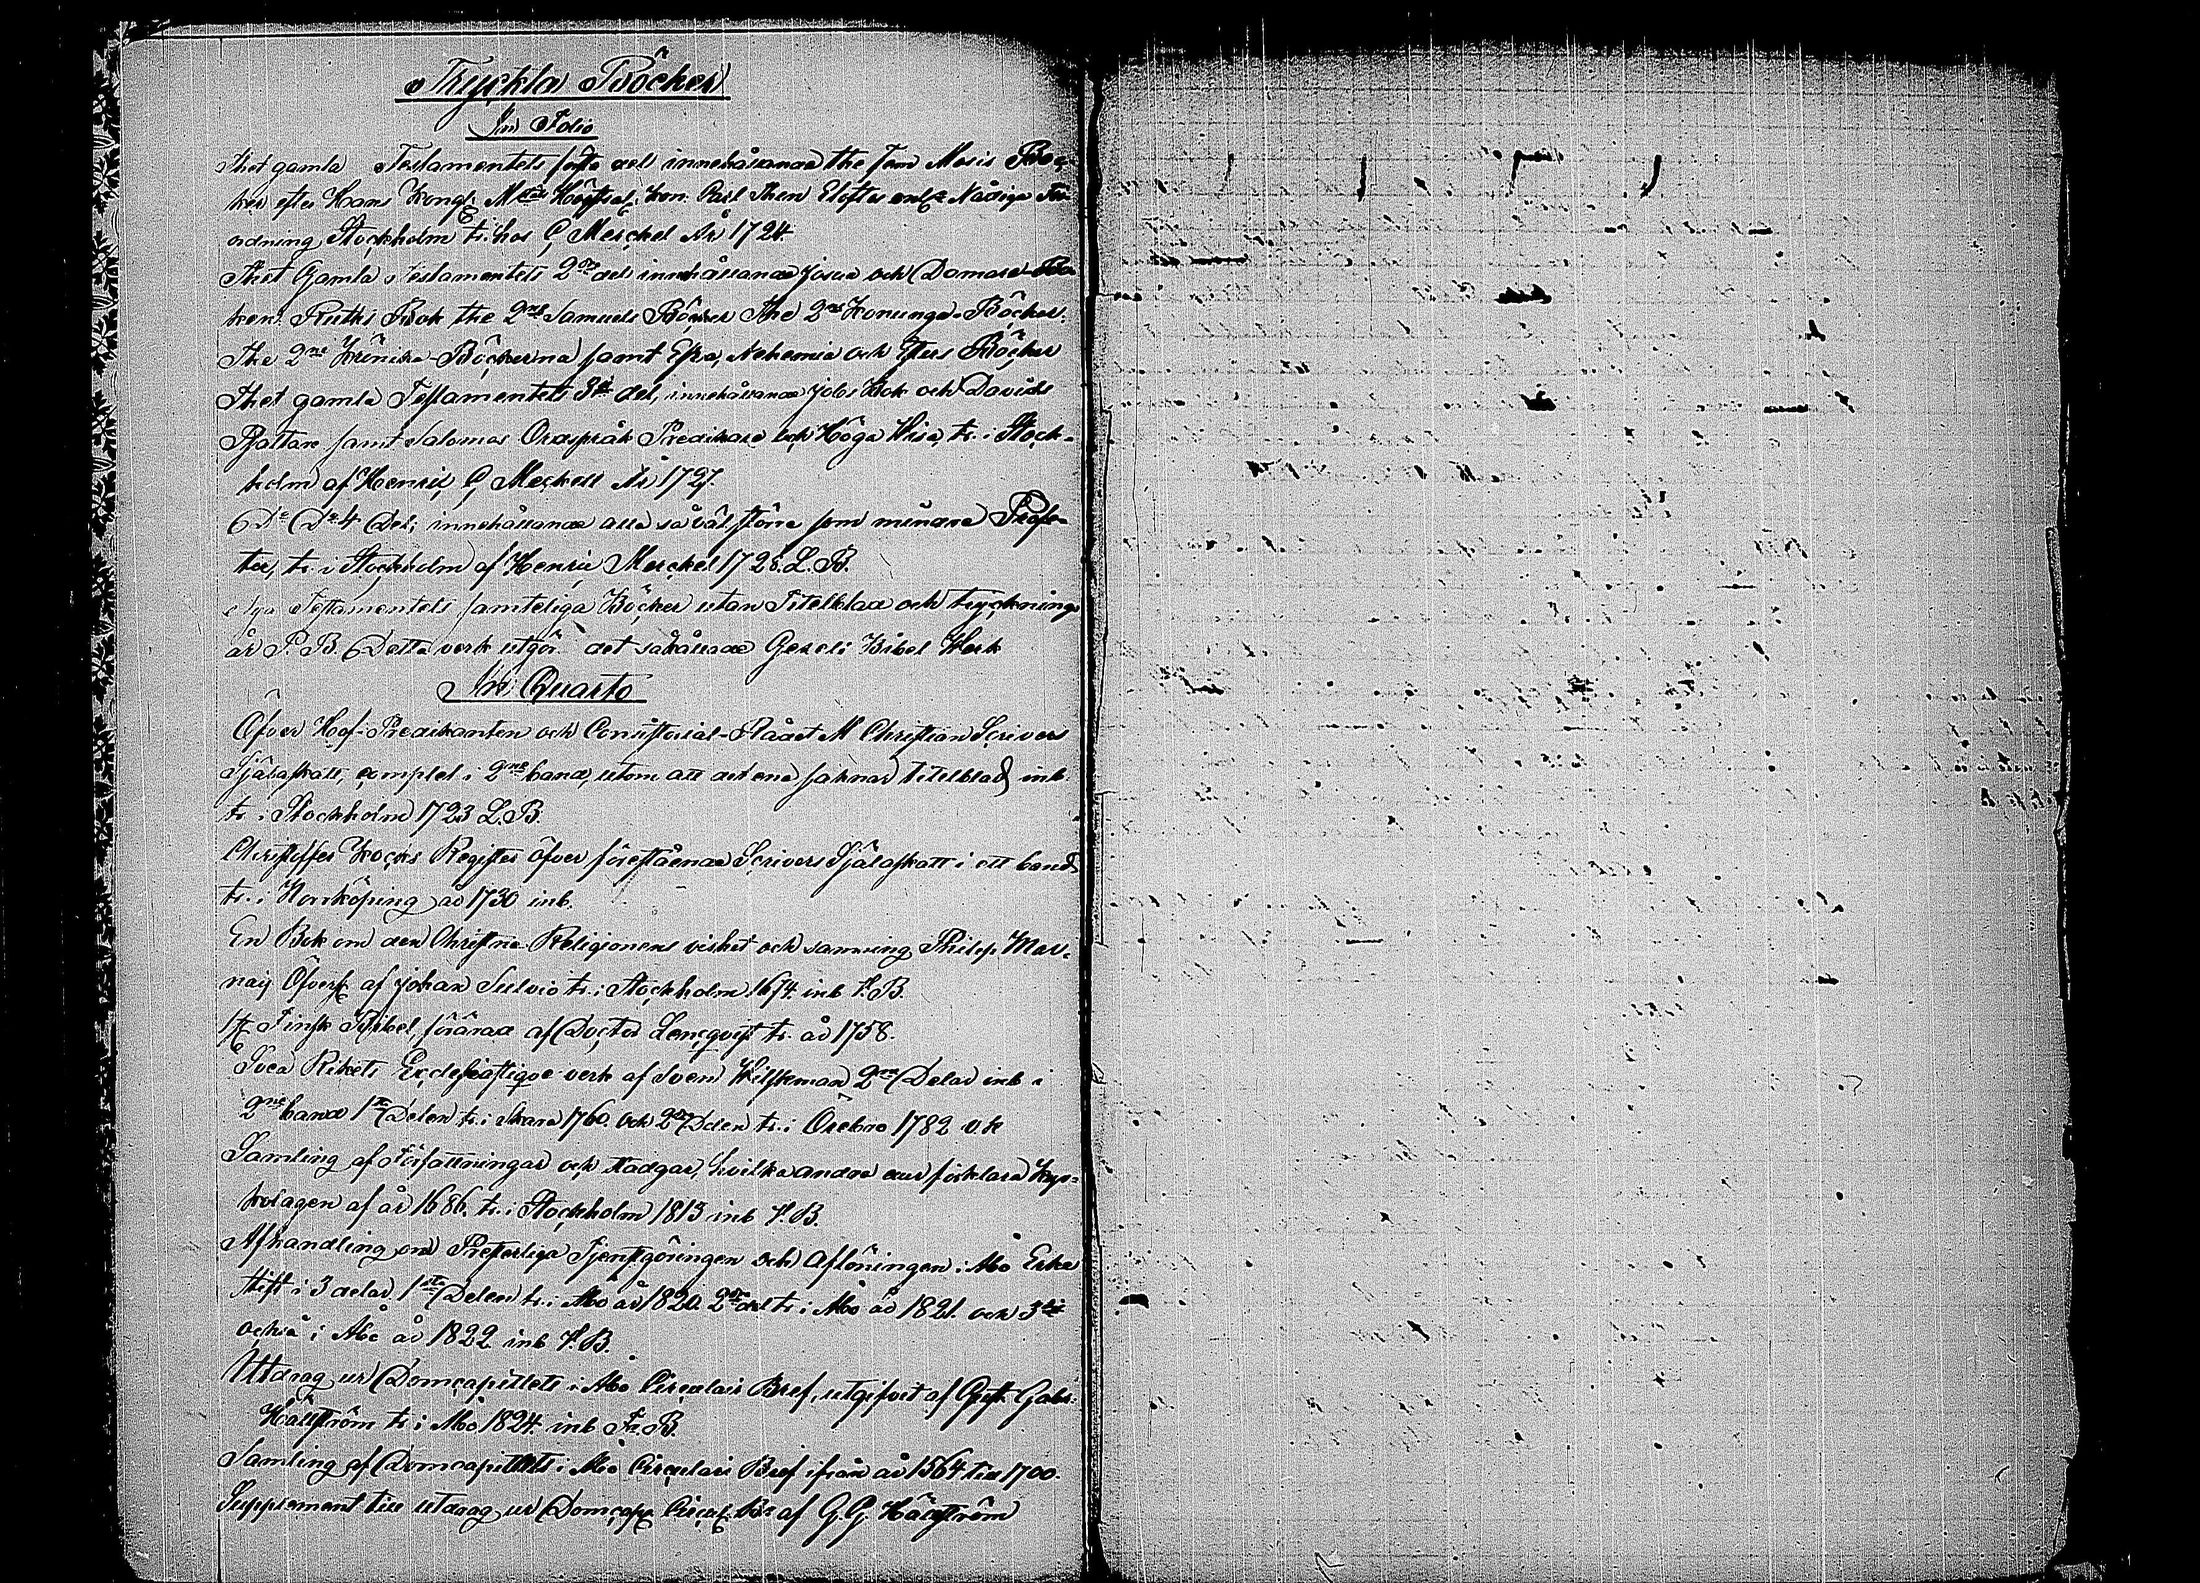 Tryckta Böcker
In Folio
Thet gamla Testamentets första del innehållande the fem Mosis Böc-
ker efter Hans Kongl. Högstsal. Kon. Carl then Eloftes Nådiga För-
ordning Stockholm tr. hos C, Merckel År 1724.
Thet Gamla Testamentets 2dra del innehållande Josua och Domare-Bö-
ken. Ruths Bok the 2ne Samuels Böcker The 2ne Konunga-Böcker.
The 2ne Krönika-Böckerna samt Esra, Nehemia och Esters Böcker
Thet gamla Testamentets 3e del, innehållande Jobs Bok och Davids
Psaltare samt Salomos Ordspråk Predikare och Höga Visa tr. i Stock-
holm af Henric C, Merckell År 1727.
Do Do 4 Del, innehållande alla så väl större som mindre Profe-
ter, tr. i Stockholm af Henric Merckel 1728. L. B.
Nya Testamentets samteliga Böcker utan Titelblad och trycknings
år P. B. Detta verk utgör det såkallade Gezeli Bibel Werk
In Quarto
Öfver Hof-Predikanten och Consistorial-Rådet M Christian Scrivers
Själaskatt, complet i 2ne band, utom att det ena saknar titelblad inb.
tr. i Stockholm 1723 L. B.
Christoffer Kocks Register öfver föreståendе Scrivers Själaskatt i ett band
tr. i Norrköping år 1730 inb.
En Bok om den Christna Religionens vishet och sanning Philip Mor-
naij Öfvers. af Johan Sylvio tr. i Stockholm 1674. inb P. B.
1st Finsk Bibel, förärad af Doctor Lencqvist tr. år 1758.
Svea Rikets Ecclesiastique verk af Sven Wilskman 2ne Delar inb i
2ne band 1sta Delen tr. i Skara 1760. och 2dra Delen tr. i Örebro 1782
Samling af Författningar och stadgar, hvilka ändra eller förklara Kyr-
kolagen af år 1686. tr. i Stockholm 1813 inb P. B.
Afhandling om Presterliga Tjenstgöringen och Aflöningen i Åbo Erke
stift i 3 delar 1sta Delen tr. i Åbo år 1820. 2dra del tr. i Åbo år 1821. och 3dje
också i Åbo år 1822 inb P. B.
Utdrag ur Domcapitlets i Åbo Circulair Bref, utgifvit af Gust. Gabr.
Hällström tr. i Åbo 1824. inb Fr. B.
Samling af Domcapitlets i Åbo Circulair Bref ifrån år 1564 till 1700.
Supplement till utdrag ur Domcap. Circul. Br af G. G. Hällström